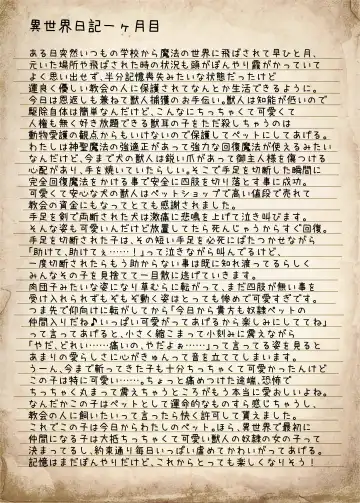 異世界日記一ヶ月目
ある日突然いつもの学校から魔法の世界に飛ばされて早ひと月、
元いた場所や飛ばされた時の状況も頭がぼんやり霧がかっていて
よく思い出せず、半分記憶喪失みたいな状態だったけど
運良く優しい教会の人に保護されてなんとか生活できるように。
今日は恩返しも兼ねて獣人捕獲のお手伝い。獣人は知能が低いので
駆除自体は簡単なんだけど、こんなにちっちゃくて可愛くて
人権も無く好き放題できる獣耳の子をただ殺しちゃうのは
動物愛護の観点からもいけないので保護してペットにしてあげる。
わたしは神聖魔法の強適正があって強力な回復魔法が使えるみたい
なんだけど、今まで犬の獣人は鋭い爪があって御主人様を傷つける
心配があり、手を焼いていたらしい。そこで手足を切断した瞬間に
完全回復魔法をかける事で安全に四肢を切り落とす事に成功。
可愛くて安心な犬の獣人はペットショップで高い値段で売れて
教会の資金にもなってとても感謝されました。
手足を剣で両断された犬は激痛に悲鳴を上げて泣き叫びます。
そんな姿も可愛いんだけど放置してたら死んじゃうからすぐ回復。
手足を切断された子は、その短い手足を必死にばたつかせながら
「助けて、助けてぇ……！」って泣きながら叫んでるけど、
一度切断されたらもう助からない事は既に知れ渡ってるらしく
みんなその子を見捨てて一目散に逃げていきます。
肉団子みたいな姿になり草むらに転がって、まだ四肢が無い事を
受け入れられずもぞもぞ動く姿はとっても惨めで可愛すぎです。
つま先で仰向けに転がしてから「今日から貴方も奴隷ペットの
仲間入りだね♪いっぱい可愛がってあげるから楽しみにしててね」
って言ってあげると、小さく縮こまって小刻みに震えながら
「やだ、どれい……痛いの、やだよぉ……」って言ってる姿を見ると
あまりの愛らしさに心がきゅんって音を立ててしまいます。
うーん、今まで斬ってきた子も十分ちっちゃくて可愛かったんけど
この子は特に可愛い……。ちょっと痛めつけた途端、恐怖で
ちっちゃく丸まって震えちゃうところがもう本当に愛おしいよね。
なんだかこの子はペットとして運命的なものすら感じちゃうし、
教会の人に飼いたいって言ったら快く許可して貰えました。
これでこの子は今日からわたしのペット。ほら、異世界で最初に
仲間になる子は大抵ちっちゃくて可愛い獣人の奴隷の女の子って
決まってるし、約束通り毎日いっぱい虐めてかわいがってあげる。
記憶はまだぼんやりだけど、これからとっても楽しくなりそう！